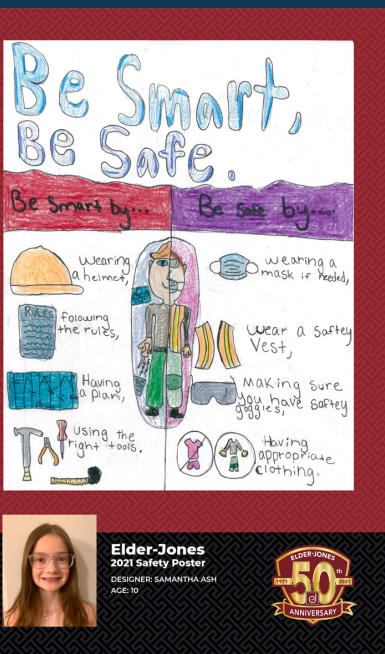 Be Smart,
Be Safe.
Be Smart by...
Be Safe by....
wearing
a helmet,
RULES
folowing
the rules,
Having
a plan,
using the
right tools.
wearing a
mask if needed,
wear a saftey
Vest,
Making sure
you have saftey
goggles,
Having
appropriate
clothing.
Elder-Jones
2021 Safety Poster
DESIGNER: SAMANTHA ASH
AGE: 10
ELDER-JONES
1971
50th
2021
of
ANNIVERSARY